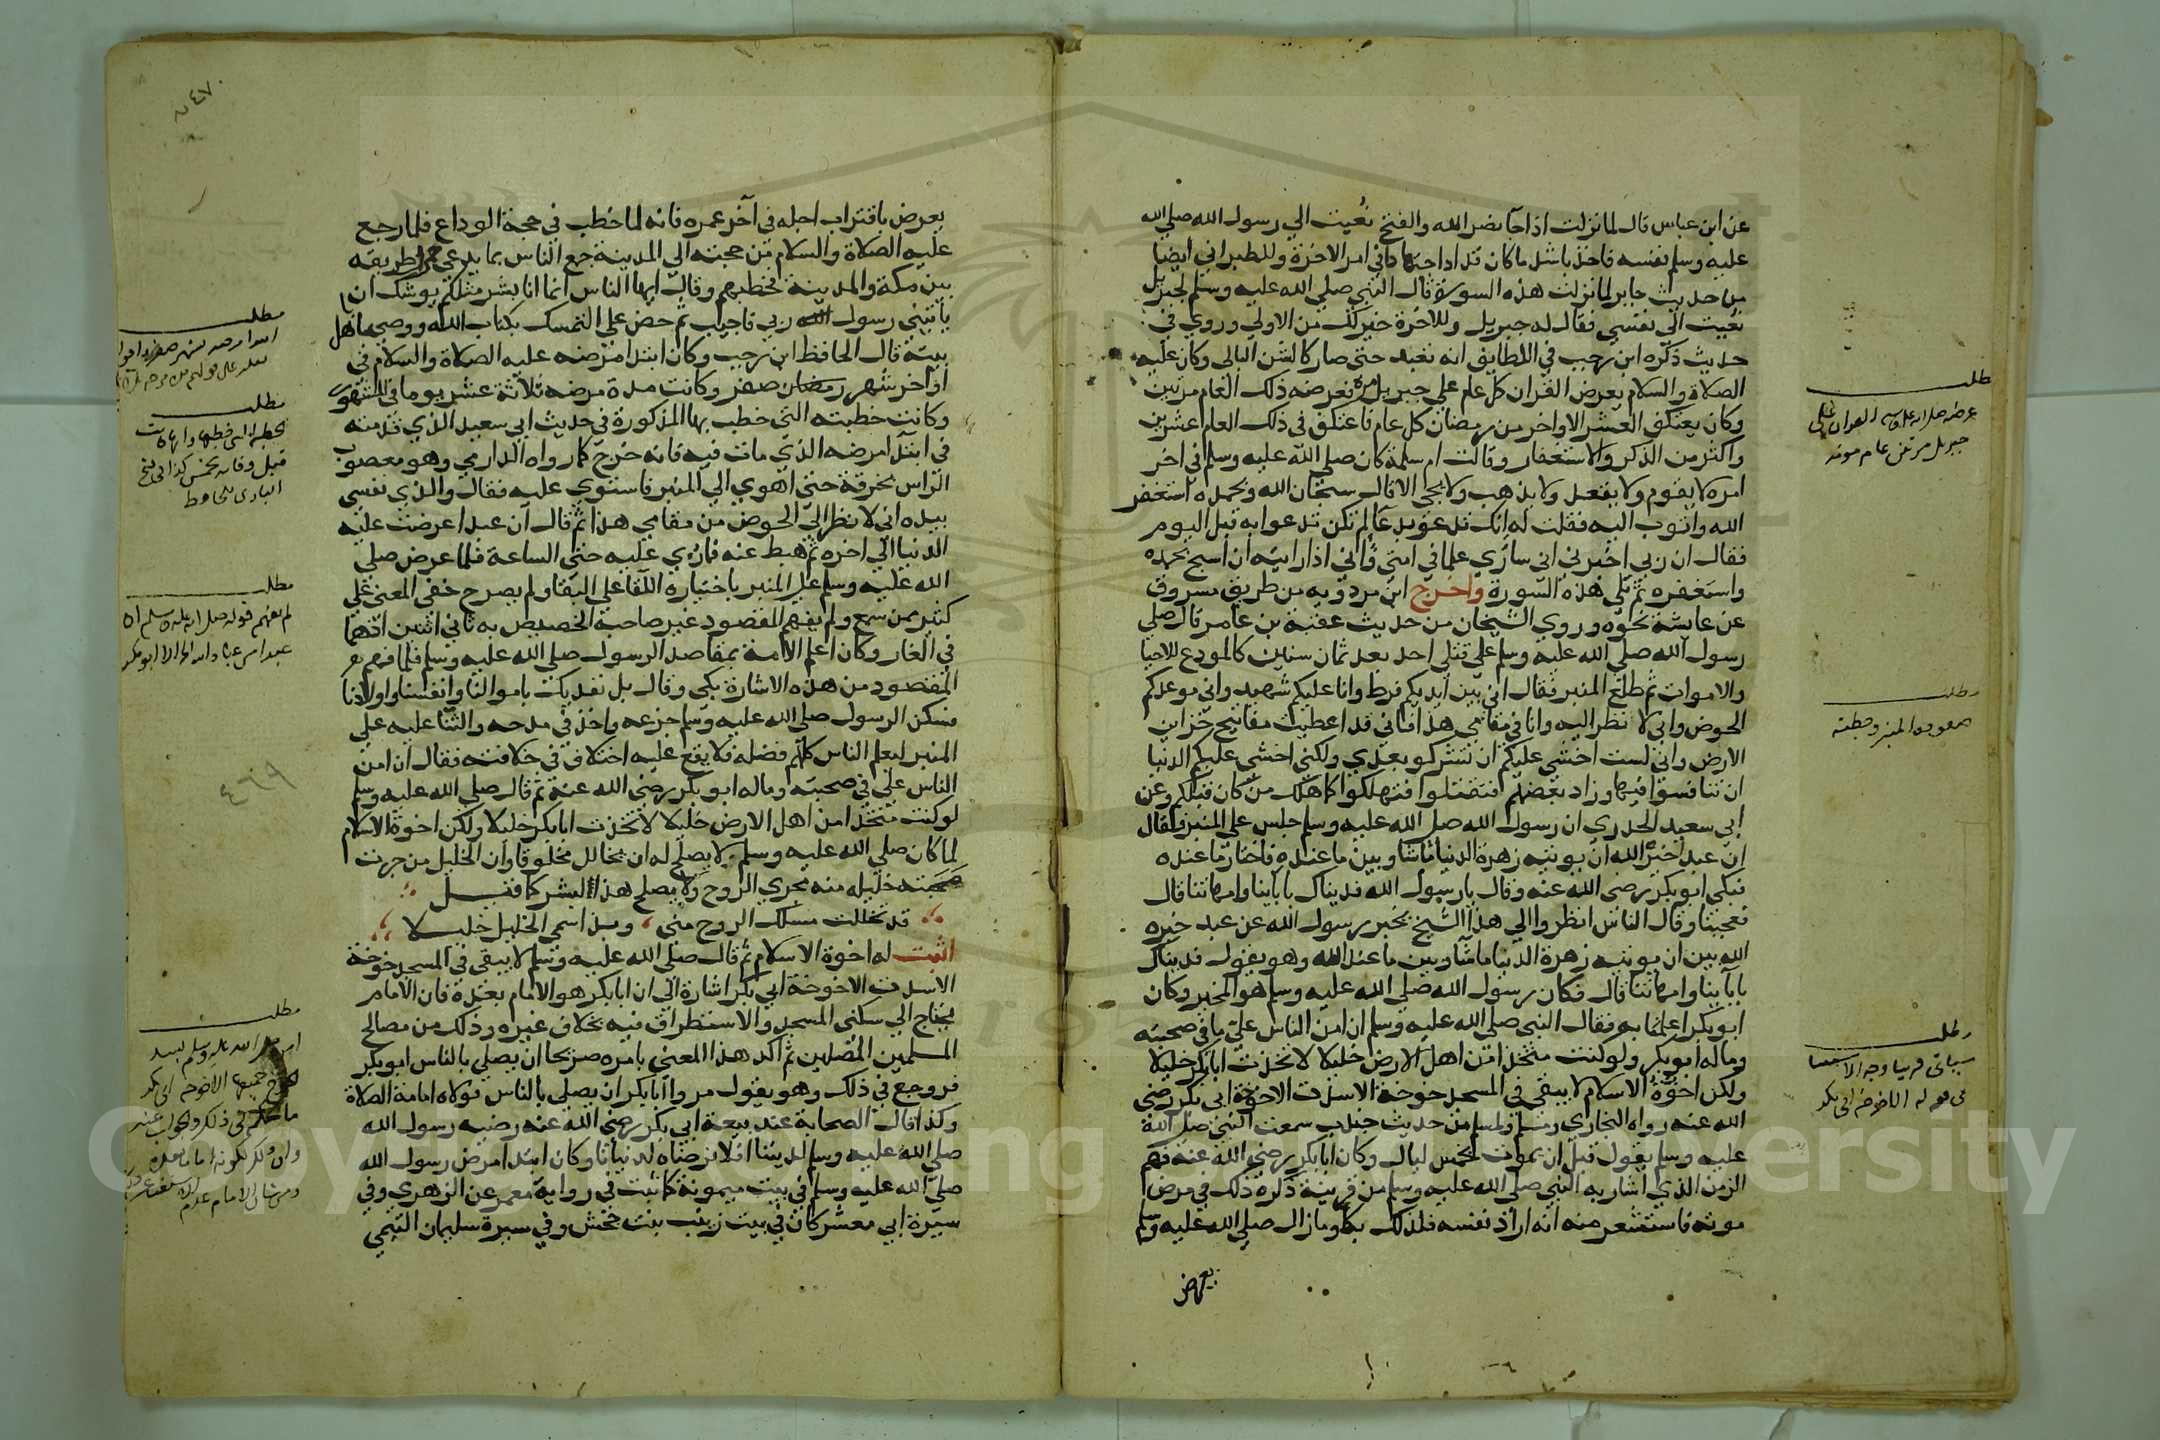 عن ابن عباس قال لما نزلت اذا جا نصر الله والفتح نُعيت الي رسول الله صلي الله
عليه وسلم نفسه فاخذ باشد ما كان قد اداجتهادا في امر الاخرة وللطبراني ايضا
من حديث جابر لما نزلت هذه السورة قال النبي صلي الله عليه وسلم لجبريل
نعيت الي نفسي فقال له جبريل وللاخرة خير لك من الاولي وروي في
حديث ذكره ابن رجب في اللطايف انه تعبد حتي صار كالشن البالي وكان عليه
الصلاة والسلام يعرض القران كل عام علي جبريل مرة فعرضه ذلك العام مرتين
وكان يعتكف العشر الاواخر من رمضان كل عام فاعتكف في ذلك العام عشرين
واكثر من الذكر والاستغفار وقالت ام سلمة كان صلي الله عليه وسلم في اخر
امره لا يقوم ولا يقعد ولا يذهب ولا يجي الا قال سبحان الله وبحمده استغفر
الله واتوب اليه فقلت له انك تدعو بدعا لم تكن تدعوا به قبل اليوم
فقال ان ربي اخبرني اني ساري علما في امتي واني اذا رايته ان اسبح بحمده
واستغفره ثم تلي هذه السورة واخرج ابن مردويه من طريق مسروق
عن عايشة نحوه وروي الشيخان من حديث عقبة بن عامر قال صلي
رسول الله صلي الله عليه وسلم علي قتلي احد بعد ثمان سنين كالمودع للاحيا
والاموات ثم طلع المنبر فقال اني بين ايديكم فرط وانا عليكم شهيد واني موعدكم
الحوض واني لا نظر اليه وانا في مقامي هذا فاني قد اعطيت مفاتيح خزاين
الارض واني لست اخشي عليكم ان تشركو بعدي ولكني اخشي عليكم الدنيا
ان تنافسوا فيها وزاد بعضهم فتقتتلوا فتهلكوا كما هلك من كان قبلكم وعن
ابي سعيد الخدري ان رسول الله صلي الله عليه وسلم جلس علي المنبر فقال
ان عبد اخيره الله ان يوتيه زهرة الدنيا ما شا وبين ما عنده فاختار ما عنده
فبكي ابو بكر رضي الله عنه وقال يا رسول الله فديناك باباينا وامهاتنا قال
فعجبنا وقال الناس انظروا الي هذا الشيخ يخبر رسول الله عن عبد خيره
الله بين ان يوتيه زهرة الدنيا ما شا وبين ما عند الله وهو يقول فديناك
باباينا وامهاتنا قال فكان رسول الله صلي الله عليه وسلم هو المخير وكان
ابو بكر اعلمنا به فقال النبي صلي الله عليه وسلم ان امن الناس علي في صحبته
وماله ابو بكر ولو كنت متخذا من اهل الارض خليلا لاتخذت ابا بكر خليلا
ولكن اخوة الاسلام لا يبقي في المسجد خوخة الا سدت الا خوخة ابي بكر رضي
الله عنه رواه البخاري ومسلم ولمسلم من حديث جندب سمعت النبي صلي الله
عليه وسلم يقول قبل ان يموت بخمس ليال وكان ابا بكر رضي الله عنه فهم
الرمز الذي اشار به النبي صلي الله عليه وسلم من قرينة ذكره ذلك في مرض
موته فاستشعر منه انه اراد نفسه فلذلك بكي وما زال صلي الله عليه وسلم
يعرض
مطلب
جبريل مرتين عام موته
مطلب
صعوده المنبر وخطبته
مطلب
في قوله الا خوخة ابي بكر
يعرض باقتراب اجله في آخر عمره فانه لما خطب في حجة الوداع فلما رجع
عليه الصلاة والسلام من حجته الي المدينة جمع الناس بما يدعي خم بطريقه
بين مكة والمدينة فخطبهم وقال ايها الناس انما انا بشر مثلكم يوشك ان
ياتيني رسول ربي فاجيب ثم حض علي التمسك بكتاب الله ووصي باهل
بيته قال الحافظ ابن رجب وكان ابتدا مرضه عليه الصلاة والسلام في
اواخر شهر صفر وكانت مدة مرضه ثلاثة عشر يوما في المشهور
وكانت خطبته التي خطب بها المذكورة في حديث ابي سعيد الذي قدمته
في ابتدا مرضه الذي مات فيه فانه خرج كما رواه الدارمي وهو معصوب
الراس بخرقة حتي اهوي الي المنبر فاستوي عليه فقال والذي نفسي
بيده اني لا نظر الي الحوض من مقامي هذا ثم قال ان عبدا عرضت عليه
الدنيا الي اخره ثم هبط عنه فما رُي عليه حتي الساعة فلما عرض صلي
الله عليه وسلم علي المنبر باختياره اللقا علي البقا ولم يصرح خفي المعني علي
كثير ممن سمع ولم يفهم المقصود غير صاحبه الخصيص به ثاني اثنين اذهما
في الغار وكان اعلم الامة بمقاصد الرسول صلي الله عليه وسلم فلما فهم
المقصود من هذه الاشارة بكي وقال بل نفديك باموالنا وانفسنا واولادنا
فسكن الرسول صلي الله عليه وسلم جزعه واخذ في مدحه والثنا عليه علي
المنبر ليعلم الناس كلهم فضله فلا يقع عليه اختلاف في خلافته فقال ان امن
الناس علي في صحبته وماله ابو بكر رضي الله عنه ثم قال صلي الله عليه وسلم
لو كنت متخذا من اهل الارض خليلا لاتخذت ابا بكر خليلا ولكن اخوة الاسلام
لما كان صلي الله عليه وسلم لا يصلح له ان يخالل مخلوقا وان الخليل من جرت
صحبته خليله منه مجري الروح ولا يصلح هذا لبشر كما قيل
قد تخللت مسلك الروح مني ، وبذا سمي الخليل خليلا
اثبت له اخوة الاسلام ثم قال صلي الله عليه وسلم لا يبقي في المسجد خوخة
الا سدت الا خوخة ابي بكر اشارة الي ان ابا بكر هو الامام بعده فان الامام
يحتاج الي سكني المسجد والاستطراق فيه بخلاف غيره وذلك من مصالح
المسلمين المصلين ثم اكد هذا المعني بامره صريحا ان يصلي بالناس ابو بكر
فروجع في ذلك وهو يقول مروا ابا بكر ان يصلي بالناس فولاه امامة الصلاة
وكذا قال الصحابة عند بيعة ابي بكر رضي الله عنه رضيه رسول الله
صلي الله عليه وسلم لديننا افلا نرضاه لدنيانا وكان ابتدا مرض رسول الله
صلي الله عليه وسلم في بيت ميمونة كما ثبت في رواية معمر عن الزهري وفي
سيرة ابي معشر كان في بيت زينب بنت جحش وفي سيرة سليمان التيمي
مطلب
مطلب
قبل وفاته بخمس كذا في فتح
الباري
مطلب
لم يفهم قوله صلي الله عليه وسلم ان
مطلب
٤٦٩
Copy King University